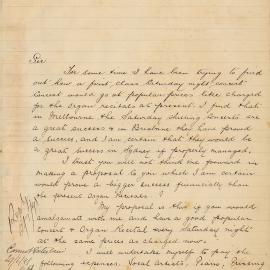 Sir
For some time I have been trying to find
out how a first class Saturday night concert
Concert would go at popular prices like charged
for the Organ recitals at present. I find that
in Melbourne the Saturday evening concerts are
a great success & in Brisbane they have proved
a success, and I am certain that they would be
a great success in Sydney if properly managed.
I trust you will not think me forward in
making a proposal to you which I am certain
would prove a bigger success financially than
the present Organ Recitals
My proposal is this if you would
amalgamate with me and have a good popular
concert & Organ Recital every Saturday night
at the same prices as charged now.
I will undertake myself to pay the
following expenses. Vocal Artists, Piano, Printing